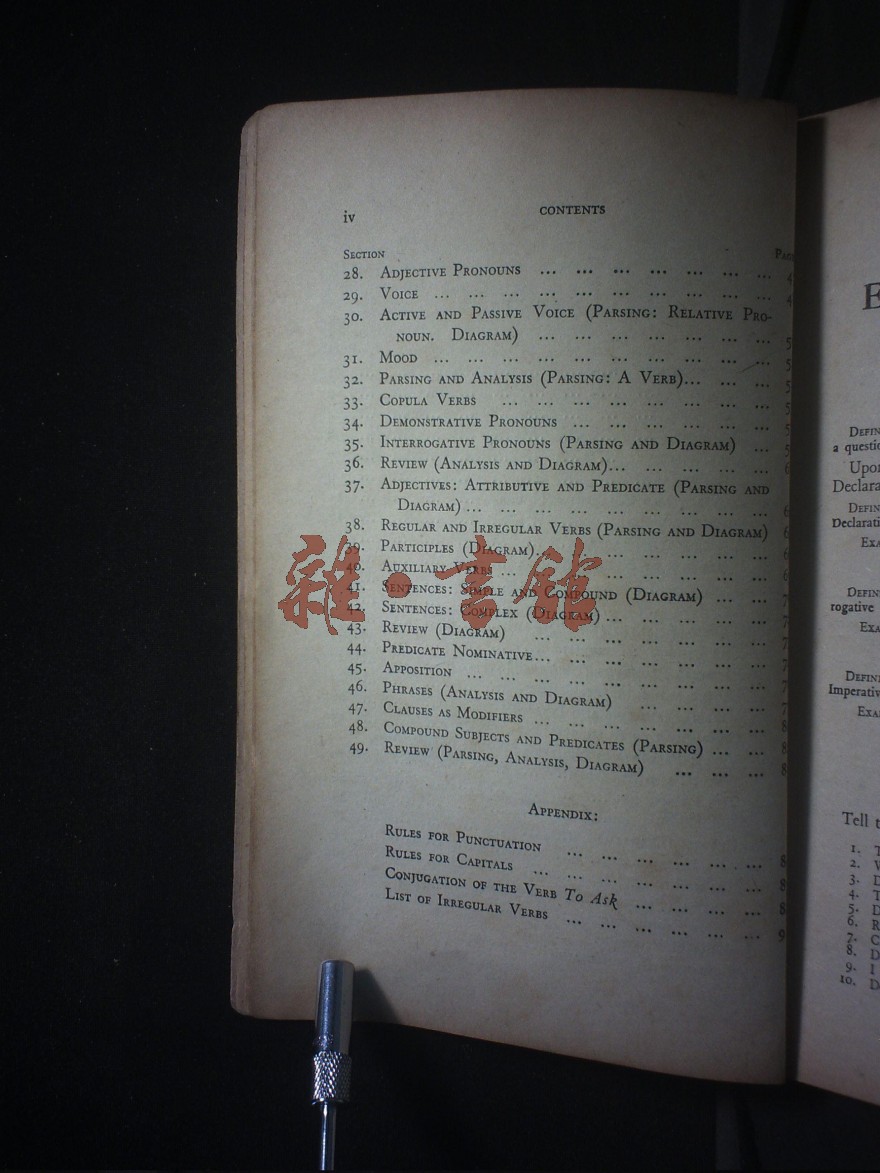 iv CONTENTS
Section
28. Adjective Pronouns ... ... ... ... ... ... ... 4
29. Voice ... ... ... ... ... ... ... ... ... ... 4
30. Active and Passive Voice (Parsing: Relative Pro-
noun. Diagram) ... ... ... ... ... ... ... 5
31. Mood ... ... ... ... ... ... ... ... ... ... 5
32. Parsing and Analysis (Parsing: A Verb)... ... ... 5
33. Copula Verbs ... ... ... ... ... ... ... ... 5
34. Demonstrative Pronouns ... ... ... ... ... ... 5
35. Interrogative Pronouns (Parsing and Diagram) ... 5
36. Review (Analysis and Diagram)... ... ... ... ... 6
37. Adjectives: Attributive and Predicate (Parsing and
Diagram) ... ... ... ... ... ... ... ... ... 6
38. Regular and Irregular Verbs (Parsing and Diagram) 6
39. Participles (Diagram)... ... ... ... ... ... ... 6
40. Auxiliary Verbs ... ... ... ... ... ... ... ... 6
41. Sentences: Simple and Compound (Diagram) ... ... 7
42. Sentences: Complex (Diagram) ... ... ... ... ... 7
43. Review (Diagram) ... ... ... ... ... ... ... 7
44. Predicate Nominative... ... ... ... ... ... ... 7
45. Apposition ... ... ... ... ... ... ... ... ... 7
46. Phrases (Analysis and Diagram) ... ... ... ... 7
47. Clauses as Modifiers ... ... ... ... ... ... ... 8
48. Compound Subjects and Predicates (Parsing) ... ... 8
49. Review (Parsing, Analysis, Diagram) ... ... ... 8
Appendix:
Rules for Punctuation ... ... ... ... ... ... 8
Rules for Capitals ... ... ... ... ... ... ... 8
Conjugation of the Verb To Ask ... ... ... ... 8
List of Irregular Verbs ... ... ... ... ... ... 9
雜·書館
E
a questio
Upor
Declara
Declarati
Exa
rogative
Exa
Imperativ
Exa
Tell t
1. T
2. V
3. D
4. T
5. D
6. R
7. C
8. D
9. I
10. D